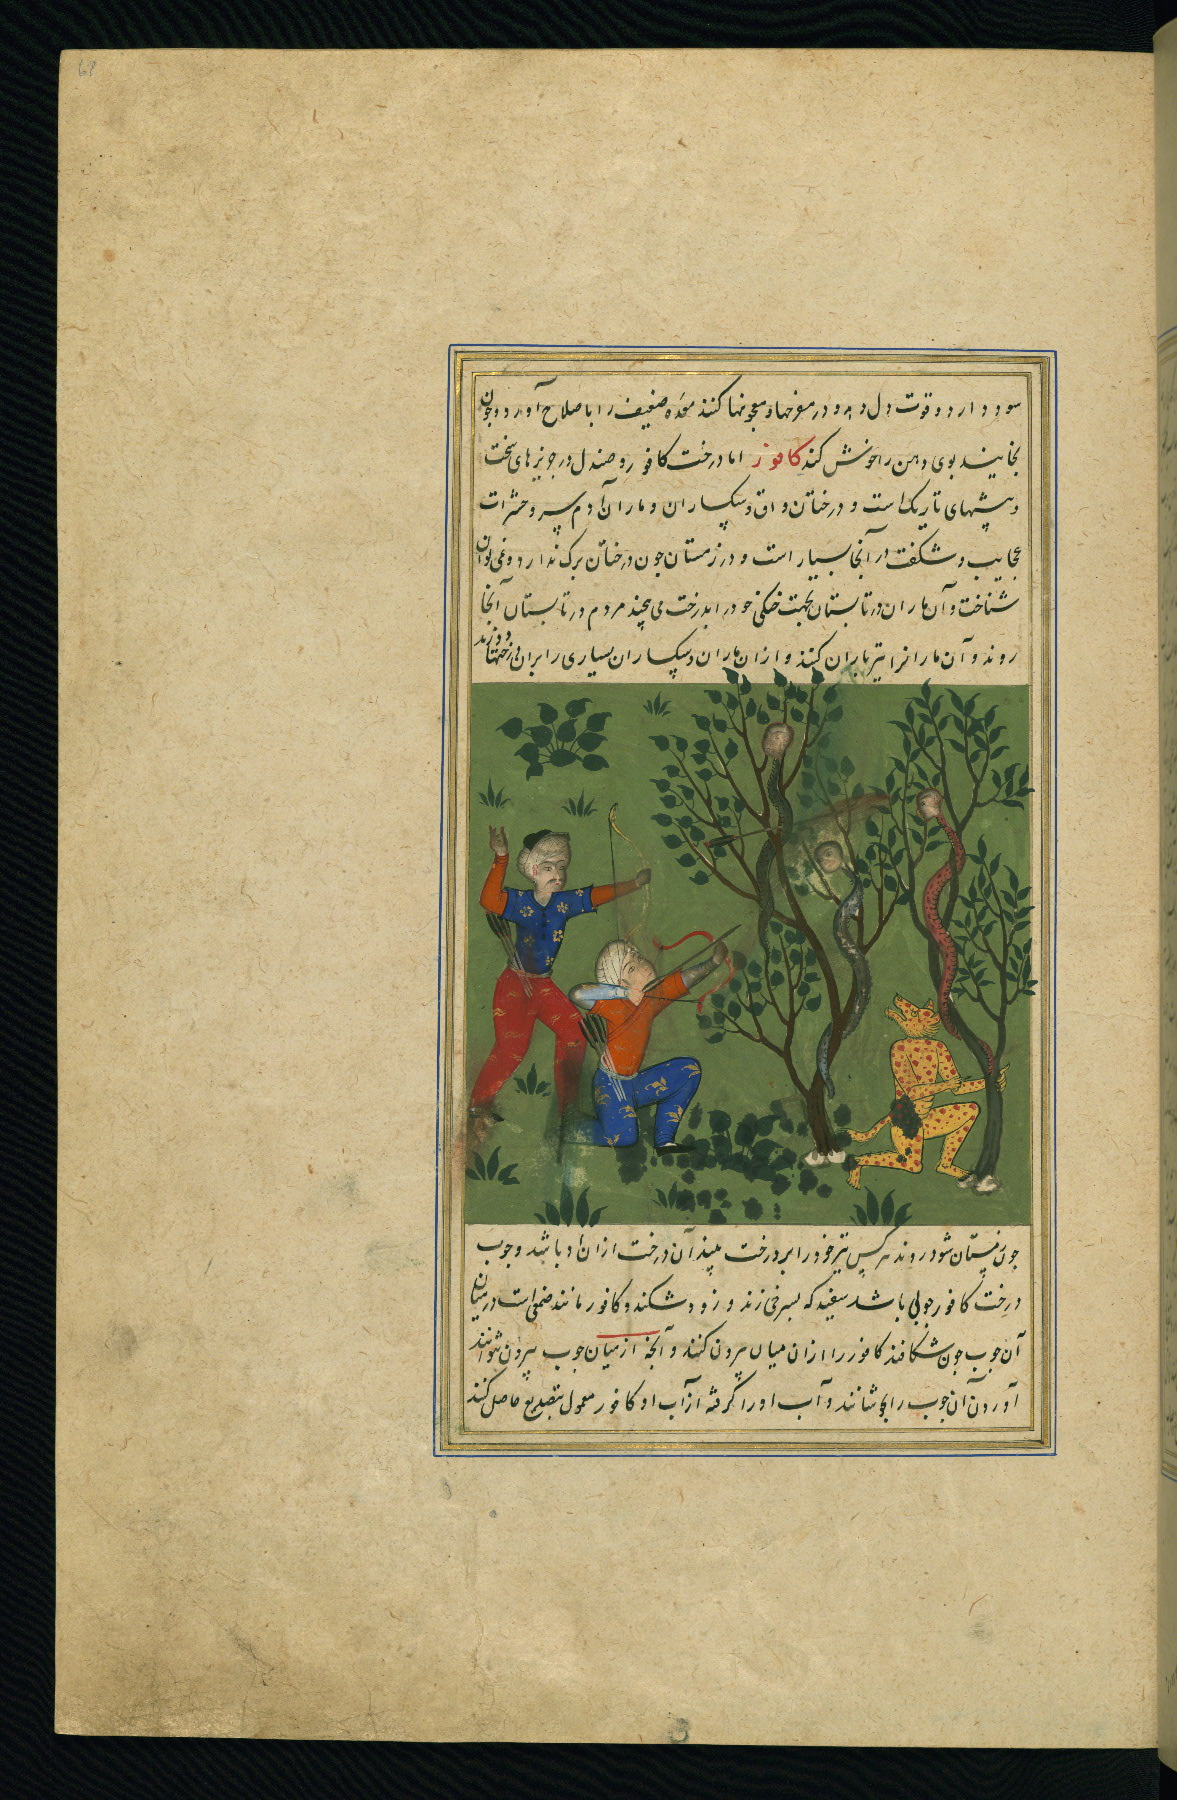 68
سود دارد و قوت دل دهد و در مفرحها و معجونها کنند معده ضعیف را باصلاح آورد و چون
بخایند بوی دهن را خوش کند کافور اما درخت کافور و صندل در جزیرهای سخت
و بیشهای تاریک است و درختان و اق و سکساران و ماران آدم سر و حشرات
عجایب و شکفت در آنجا بسیار است و در زمستان جون درختان برک ندارد و نمی توان
شناخت و آن ماران در تابستان بجهت خنکی خود را بدرخت می پیچند مردم در تابستان آنجا
روند و آن مارانرا تیرباران کنند و ازان ماران و سکساران بسیاری را بران درختها دوزند
جون زمستان شود روند هر کس تیر خود را بر درخت بیند آن درخت ازان او باشد و جوب
درخت کافور جوبی باشد سفید که بسرخی زند و زود شکند و کافور مانند صمغی است در میان
آن جوب جون شکافند کافور را ازان میان بیرون کنند و آنجه از میان جوب بیرون نتوانند
آوردن آن جوب را بجوشانند و آب او را گرفته از آب او کافور معمول بتصدیع حاصل کنند